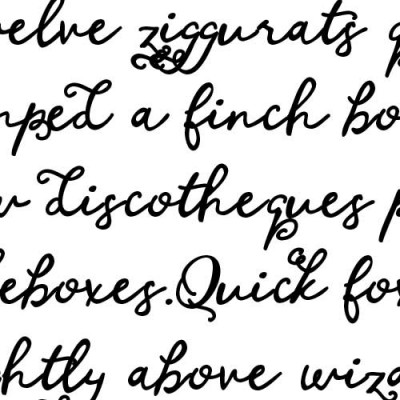 elve ziggurats q
mped a finch bo
w discotheques p
eboxes.Quick fo
htly above wiza